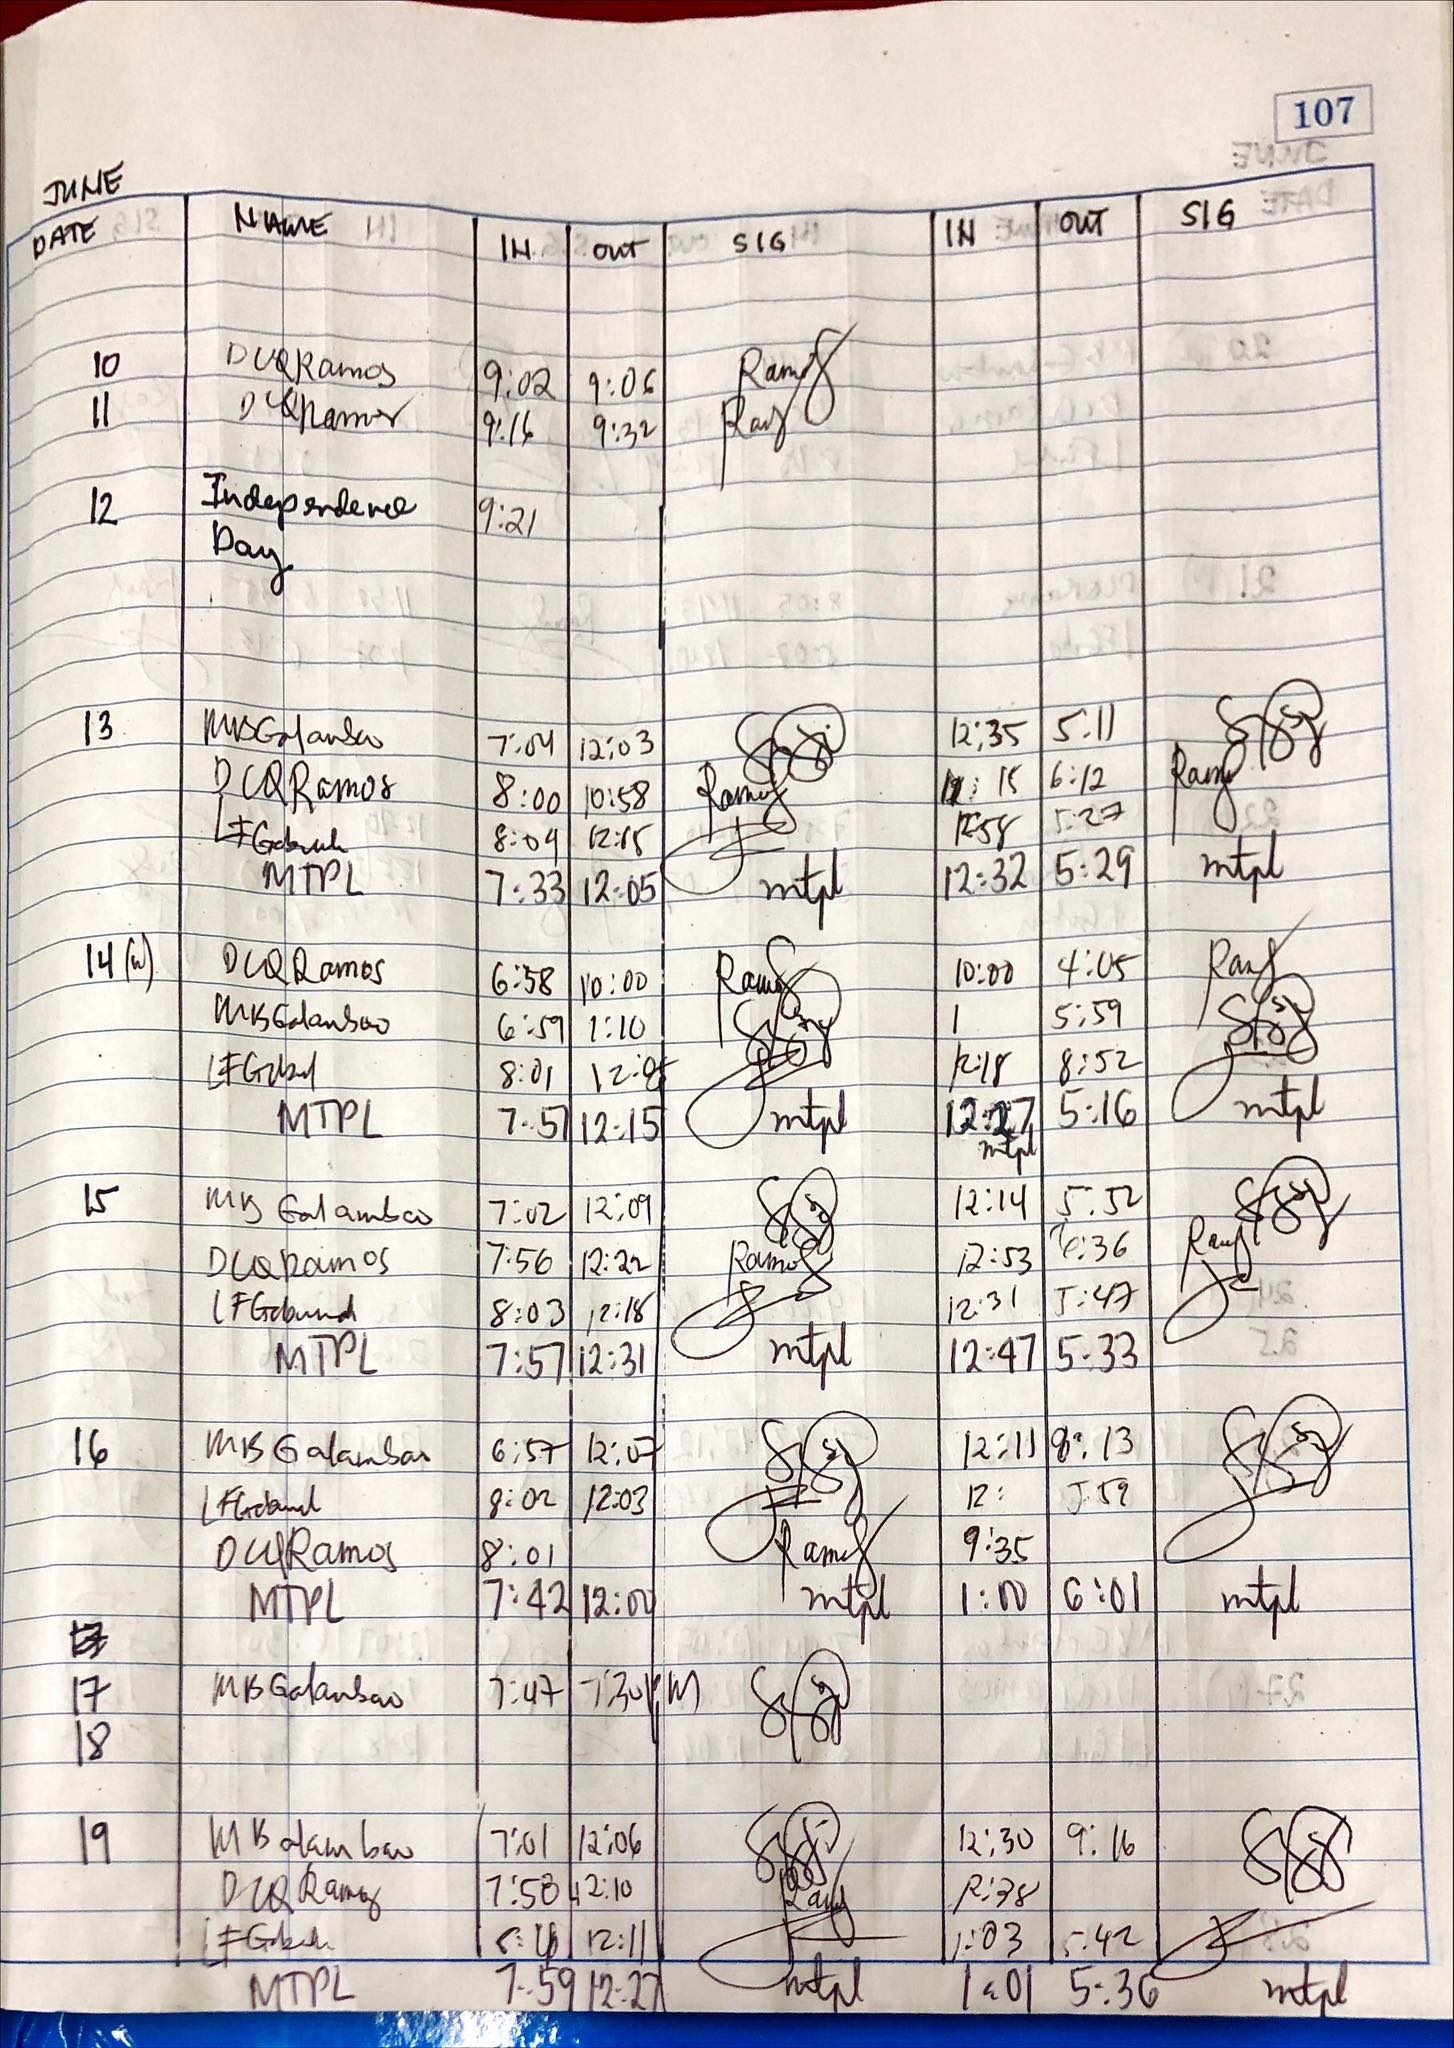 107
JUNE
DATE NAME IN OUT SIG IN OUT SIG
10 DCQRamos 9:02 9:06 Ramos
11 DCQRamos 9:16 9:32
12 Independence 9:21
Day
13 MBGalambao 7:04 12:03 12:35 5:11
DCQRamos 8:00 10:58 Ramos 6:12
8:04 12:15 12:58 5:27
MTPL 7:33 12:05 mtpl 12:32 5:29 mtpl
14 (w) DCQRamos 6:58 10:00 Ramos 10:00 4:05
MBGalambao 6:59 1:10 1 5:59
8:01 12:18 8:52
MTPL 7:57 12:15 mtpl 12:27 5:16 mtpl
mtpl
15 MB Galambao 7:02 12:09 12:14 5:52
DCQRamos 7:56 12:22 Ramos 12:53 6:36
8:03 12:18 12:31 5:47
MTPL 7:57 12:31 mtpl 12:47 5:33
16 MB Galambao 6:57 12:07 12:11 8:13
8:02 12:03 12: 5:59
DCQRamos 8:01 Ramos 9:35
MTPL 7:42 12:00 mtpl 1:00 6:01 mtpl
17 MBGalambao 7:47 7:30PM
18
19 MBalambao 7:01 12:06 12:30 9:16
DCQRamos 7:58 12:10 12:38
12:11 1:03 5:42
MTPL 7:59 12:27 mtpl 1:01 5:36 mtpl